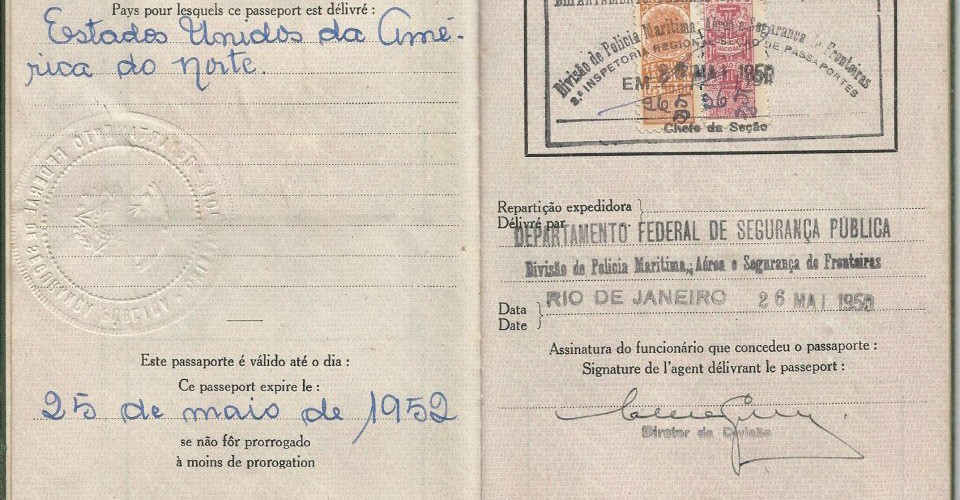 Pays pour lesquels ce passeport est délivré :
Estados Unidos da Amé-
rica do norte.
Este passaporte é válido até o dia :
Ce passeport expire le :
25 de maio de 1952
se não fôr prorrogado
à moins de prorogation
Divisão de Policia Maritima, Aérea e Segurança de Fronteiras
2.ª INSPETORIA REGIONAL SECÇÃO DE PASSAPORTES
EM 26 MAI 1950
Chefe da Seção
Repartição expedidora
Délivré par
DEPARTAMENTO FEDERAL DE SEGURANÇA PÚBLICA
Divisão de Policia Maritima, Aérea e Segurança de Fronteiras
Data
Date
RIO DE JANEIRO 26 MAI 1950
Assinatura do funcionário que concedeu o passaporte :
Signature de l'agent délivrant le passeport :
Diretor da Divisão